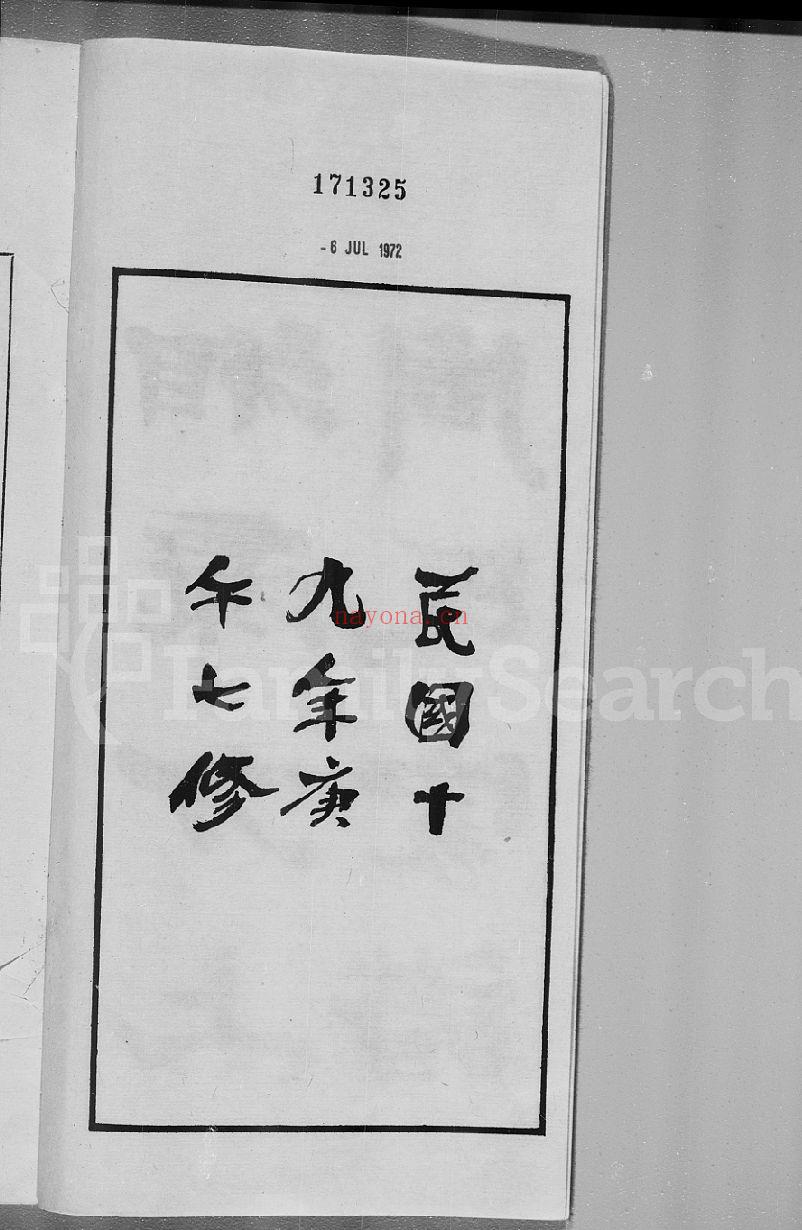 171325
- 6 JUL 1972
民國十
九年庚
午七修
nayona.cn
FamilySearch